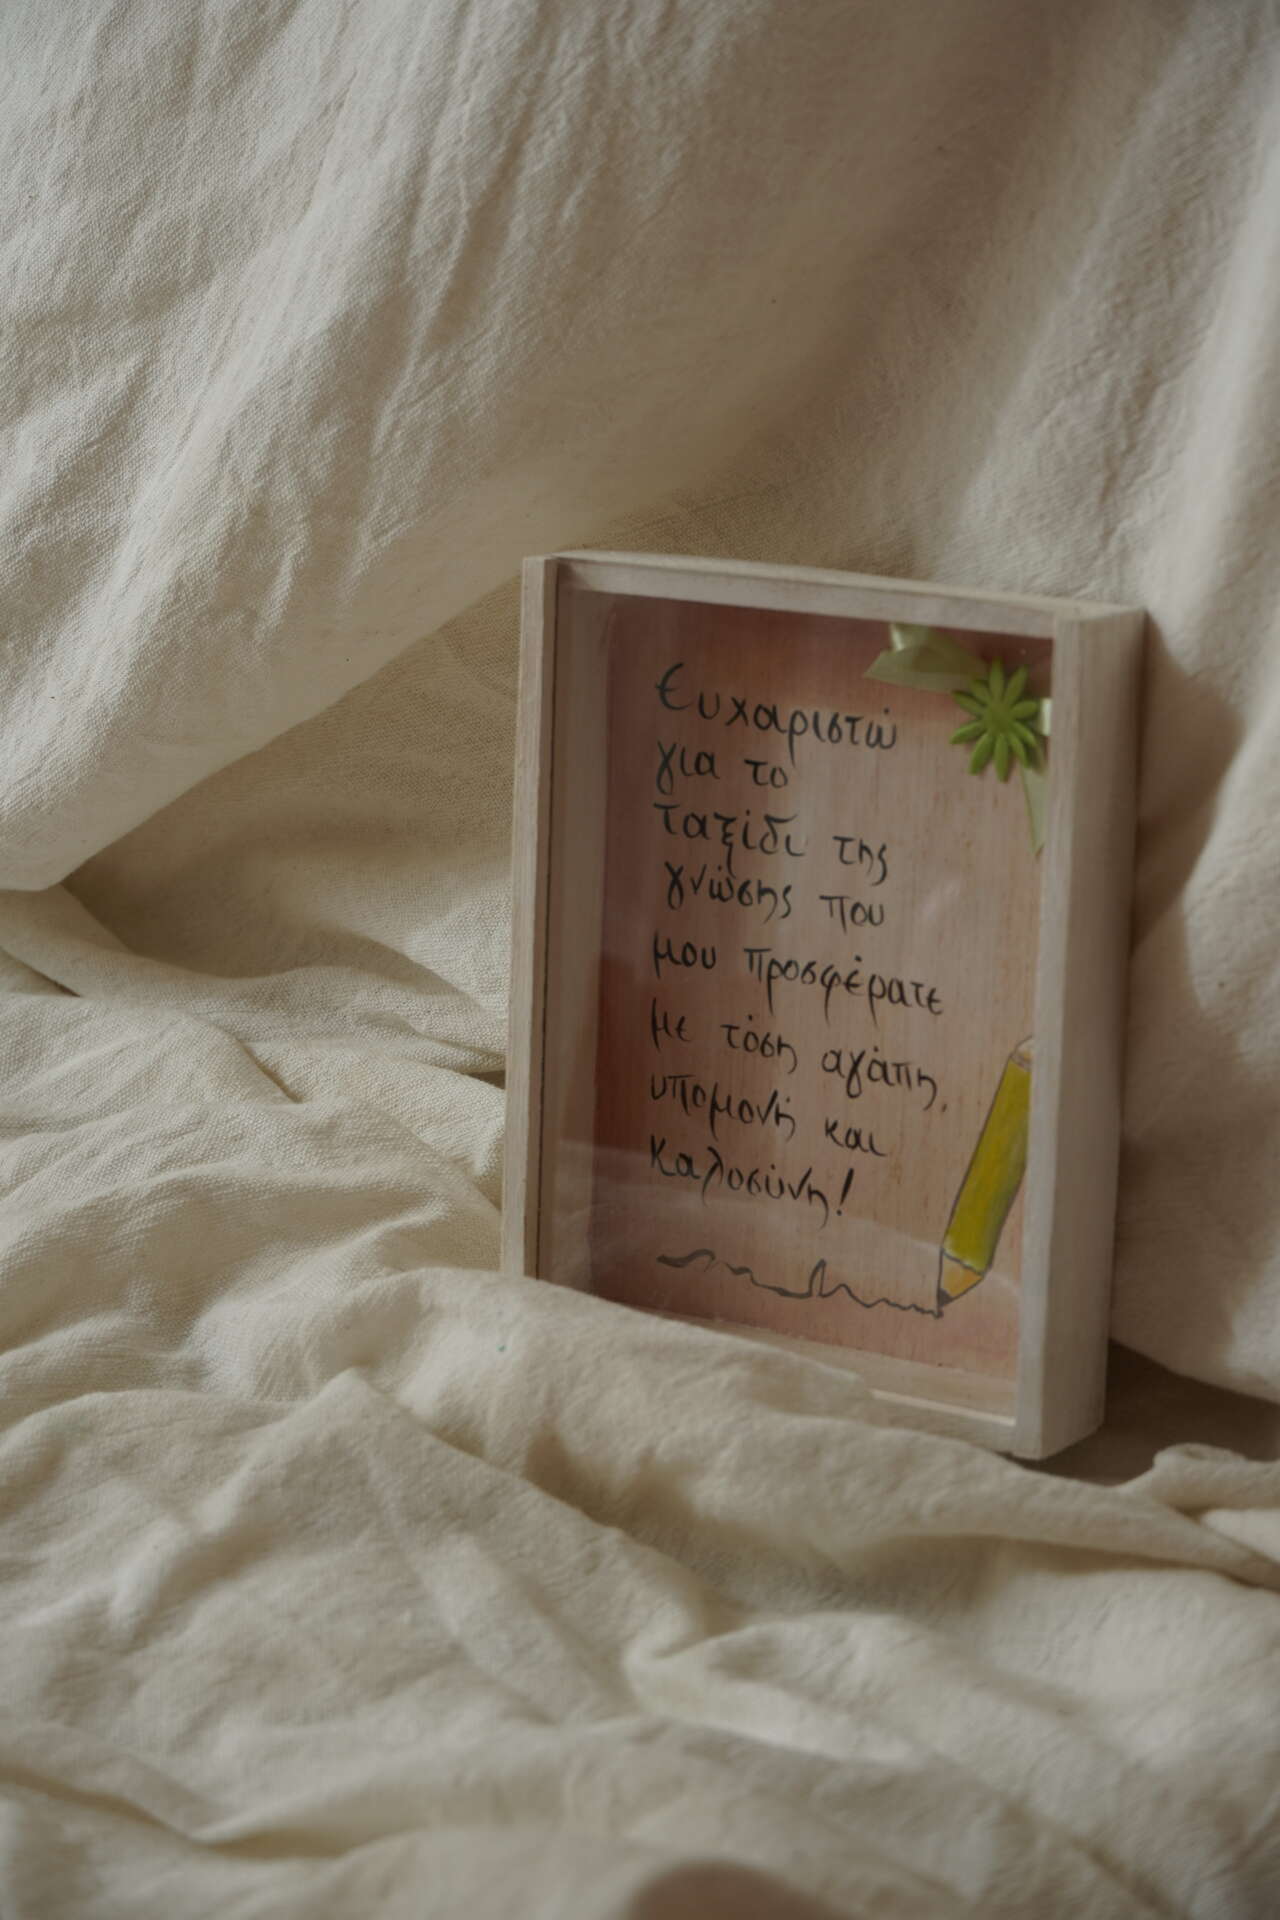 Ευχαριστώ
για το
ταξίδι της
γνώσης που
μου προσφέρατε
με τόση αγάπη,
υπομονή και
καλοσύνη!